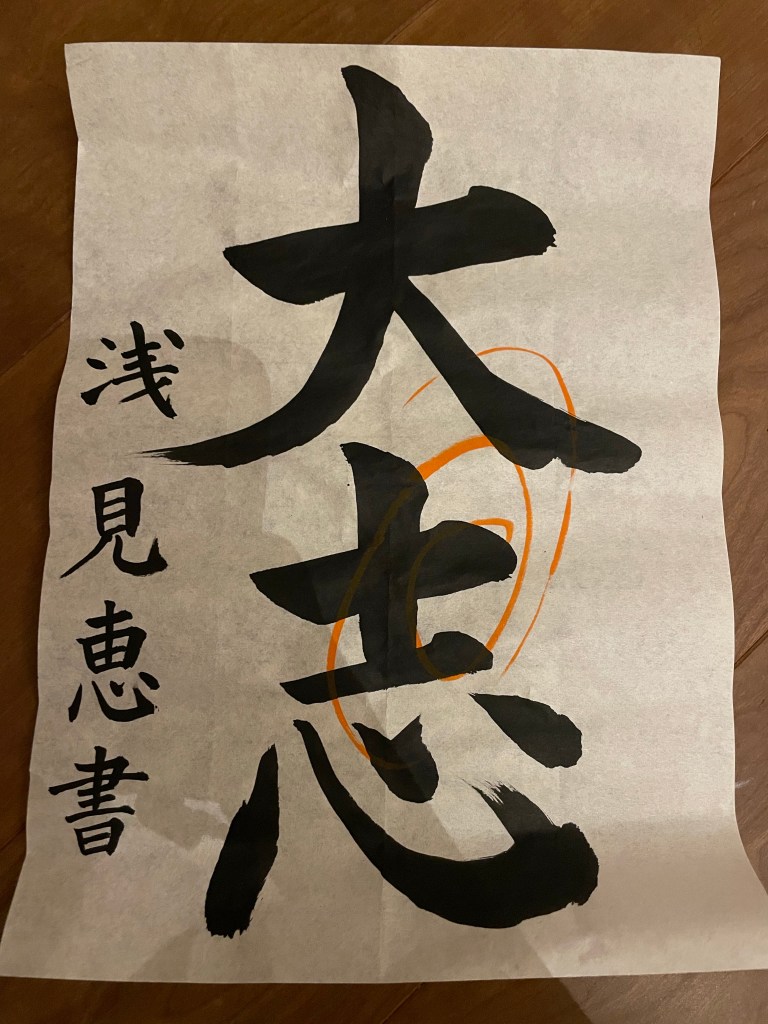 大志
浅見恵書